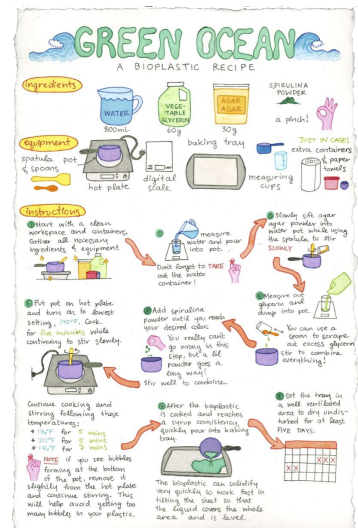 GREEN OCEAN
A BIOPLASTIC RECIPE
ingredients
WATER
800mL
VEGE-
TABLE
GLYCERIN
60g
AGAR
AGAR
30g
SPIRULINA
POWDER
a pinch!
equipment
spatula pot
& spoons
hot plate
digital
scale
baking tray
measuring
cups
JUST IN CASE!
extra containers
& paper
towels
instructions
Start with a clean
workspace and containers.
Gather all necessary
ingredients & equipment
measure
water and pour
into pot.
Don't forget to TAKE
out the water
container!
Slowly sift agar
agar powder into
water pot while using
the spatula to stir
SLOWLY
Measure out
glycerin and
dump into pot.
You can use a
spoon to scrape
out excess glycerin
stir to combine
everything!
Add spirulina
powder until you reach
your desired color.
You really can't
go wrong in this
step, but a lil
powder goes a
long way!
Stir well to combine.
Put pot on hot plate
and turn on to lowest
setting, 140°F. Cook
for five minutes while
continuing to stir slowly.
Continue cooking and
stirring following these
temperatures:
for 5 mins
for 5 mins
for 2 mins
NOTE if you see bubbles
forming at the bottom
of the pot, remove it
slightly from the hot plate
and continue stirring. This
will help avoid getting too
many bubbles in your plastic.
After the bioplastic
is cooked and reaches
a syrup consistency,
quickly pour into baking
tray.
The bioplastic can solidify
very quickly so work fast in
tilting the sheet so that
the liquid covers the whole
area and is level
Set the tray in
a well ventilated
area to dry undis-
turbed for at least
FIVE DAYS.